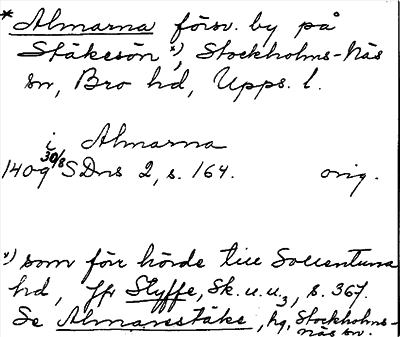 * Almarna försv. by på
Stäkesön x), Stockholms-Näs
sn, Bro hd, Upps. l.
i Almarna
1409 30/8 SDns 2, s. 164. orig.
x) som förr hörde till Sollentuna
hd, jfr Styffe, Sk. u. u3, s. 367.
Se Almarestäke, hg, Stockholms-
näs sn.